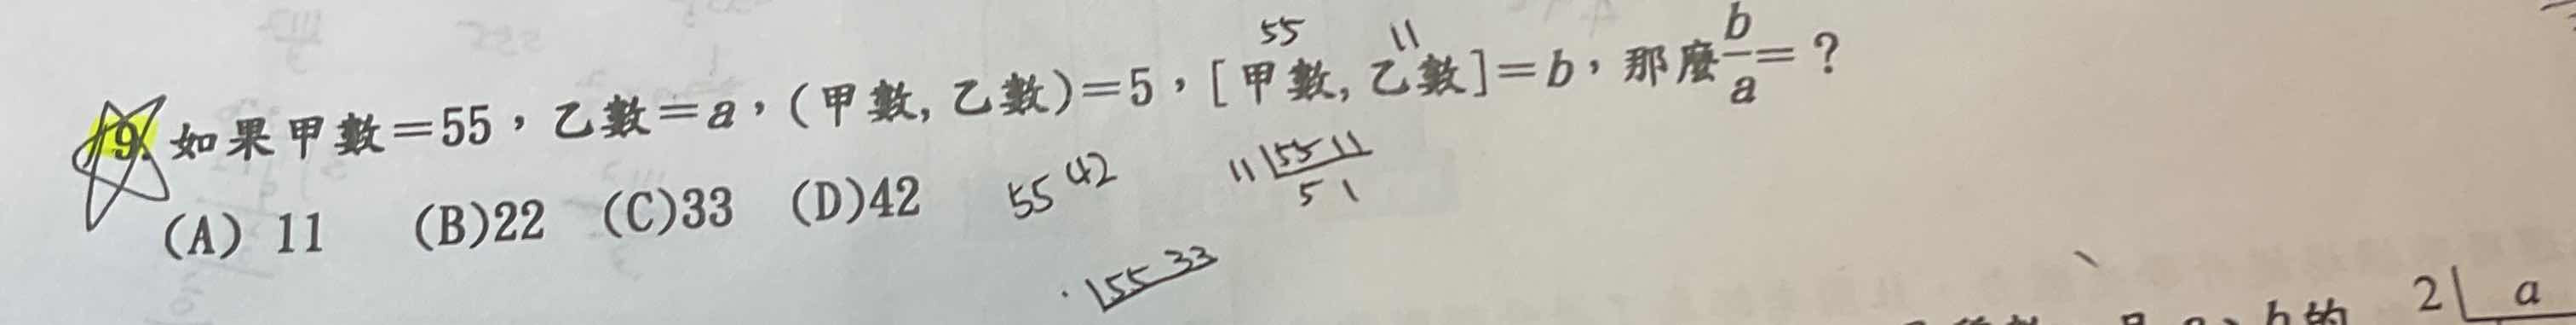 55 11
9. 如果甲數=55，乙數=a，(甲數, 乙數)=5，[甲數, 乙數]=b，那麼b/a=？
(A) 11 (B)22 (C)33 (D)42
55 42
11 55 11
5 1
55 33
2 a
b的